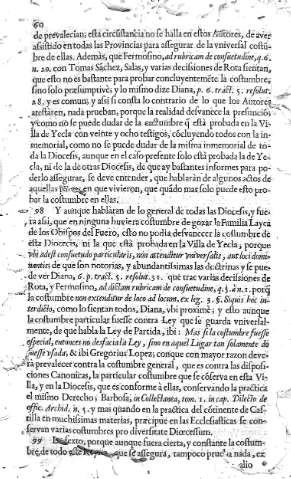 60
de prevalecian; està circũstancia no se halla en estos Autores, de aver
assistido en todas las Provincias para assegurar de la vniversal costũ-
bre de ellas. Ademàs, que Fermosino, ad rubricam de consuetudine, q. 6.
n. 20. con Tomàs Sãchez, Salas, y varias decissiones de Rota sientan,
que esto no es bastante para probar concluyentemẽte la costumbre,
sino solo præsumptivè; y lo mismo dize Diana, p. 6. tract. 5. resolut.
28. y es comun, y assi si consta lo contrario de lo que los Autores
atestaren, nada prueban, porque la realidad desvanece la presunciõ
y como no se puede dudar de la costumbre q̃ està probada en la Vi-
lla de Yecla con veinte y ocho testigos, cõcluyendo todos con la in-
memorial, como no se puede dudar de la misma inmemorial de to-
da la Diocesis, aunque en el caso presente solo està probada la de Ye-
cla, ni de la de otras Diocesis, de que ay bastantes informes para po-
derlo assegurar, se deve entender, que hablaràn de algunos actos de
aquellas partes, en que vivieron, que quãdo mas solo puede esto pro-
bar la costumbre en ellas.
98 Y aunque hablàran de lo general de todas las Diocesis, y fue-
ra assi, que en ninguna huviera costumbre de gozar la Familia Layca
de los Obispos del Fuero, esto no podia desvanecer la costumbre de
esta Diocesis, ni la que està probada en la Villa de Yecla, porque
vbi adest consuetudo particularis, non attenditur vniversalis, aut loci domi-
nantis de que son notorias, y abundantissimas las doctrinas y se pue-
de ver Diana, 6. p. tract. 5. resolut. 31. que trae varias decisiones de
Rota, y Fermosino, ad dictam rubricam de consuetudine, q. 3. à n. 1. porq̃
la costumbre non extenditur de loco ad locum, ex leg. 3. §. Siquis hic in-
terdicto, como lo sientan todos, Diana, vbi proximè; y esto aunque
la costumbre particular fuesse contra Ley que se guarda vniversal-
mente, de que habla la Ley de Partida, ibi: Mas si la costumbre fuesse
especial, entonces no desfaria la Ley, sino en aquel Lugar tan solamente do
fuesse vsada, & ibi Gregorius Lopez; conque con mayor razon deve-
rà prevalecer contra la costumbre general, que es contra las disposi-
ciones Canonicas, la particular costumbre que se observa en esta Vi-
lla, y en la Diocesis, que es conforme à ellas, conservando la práctica
el mismo Derecho; Barbosa, in Collectanea, tom. 1. in cap. Dilecto de
offic. Archid. n. 5. y mas quando en la practica del cõtinente de Cas-
tilla en muchissimas materias, præcipuè en las Ecclesiasticas se con-
servan varias costumbres pro diversitate Diœcesum.
99 Lo sexto, porque aunque fuera cierta, y constante la costum-
bre de todo el Reyno que se assegura, tampoco prueba nada, ex
alio